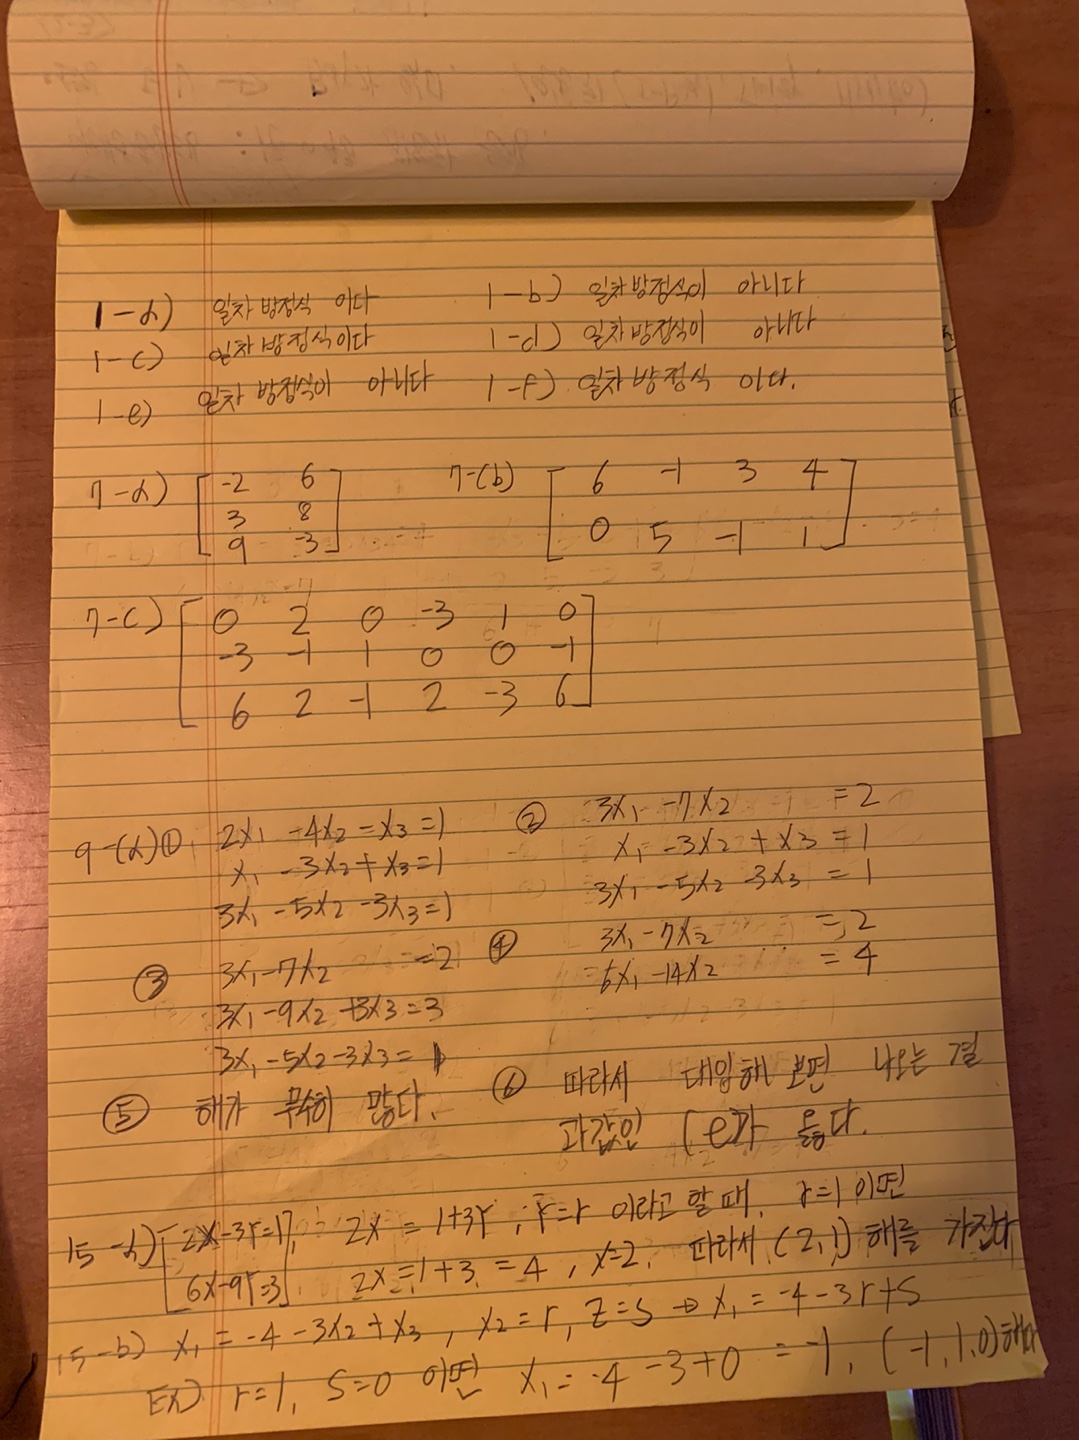 1-a) 일차 방정식 이다 1-b) 일차방정식이 아니다
1-c) 일차방정식이다 1-d) 일차방정식이 아니다
1-e) 일차 방정식이 아니다 1-f) 일차방정식 이다.
7-a) [ -2 6
3 8
9 -3 ]
7-(b) [ 6 -1 3 4
0 5 -1 1 ]
7-c) [ 0 2 0 -3 1 0
-3 -1 1 0 0 -1
6 2 -1 2 -3 6 ]
9-(a) ① 2x₁ -4x₂ = x₃ = 1
x₁ -3x₂ + x₃ = 1
3x₁ -5x₂ -3x₃ = 1
② 3x₁ -7x₂ = 2
x₁ -3x₂ + x₃ = 1
3x₁ -5x₂ -3x₃ = 1
③ 3x₁ -7x₂ = 2
3x₁ -9x₂ +3x₃ = 3
3x₁ -5x₂ -3x₃ = 1
④ 3x₁ -7x₂ = 2
6x₁ -14x₂ = 4
⑤ 해가 무수히 많다.
⑥ 따라서 대입해 보면 나오는 결
과값인 (e)가 옳다.
15-a) [2x-3r=1], 2x = 1+3r, r=r 이라고 할때, r=1 이면
[6x-9r=3] 2x=1+3 = 4, x=2. 따라서 (2,1) 해를 가진다
15-b) x₁ = -4 -3x₂ + x₃, x₂=r, z=s → x₁ = -4-3r+s
Ex) r=1, s=0 이면 x₁ = -4 -3+0 = -1, (-1,1,0)